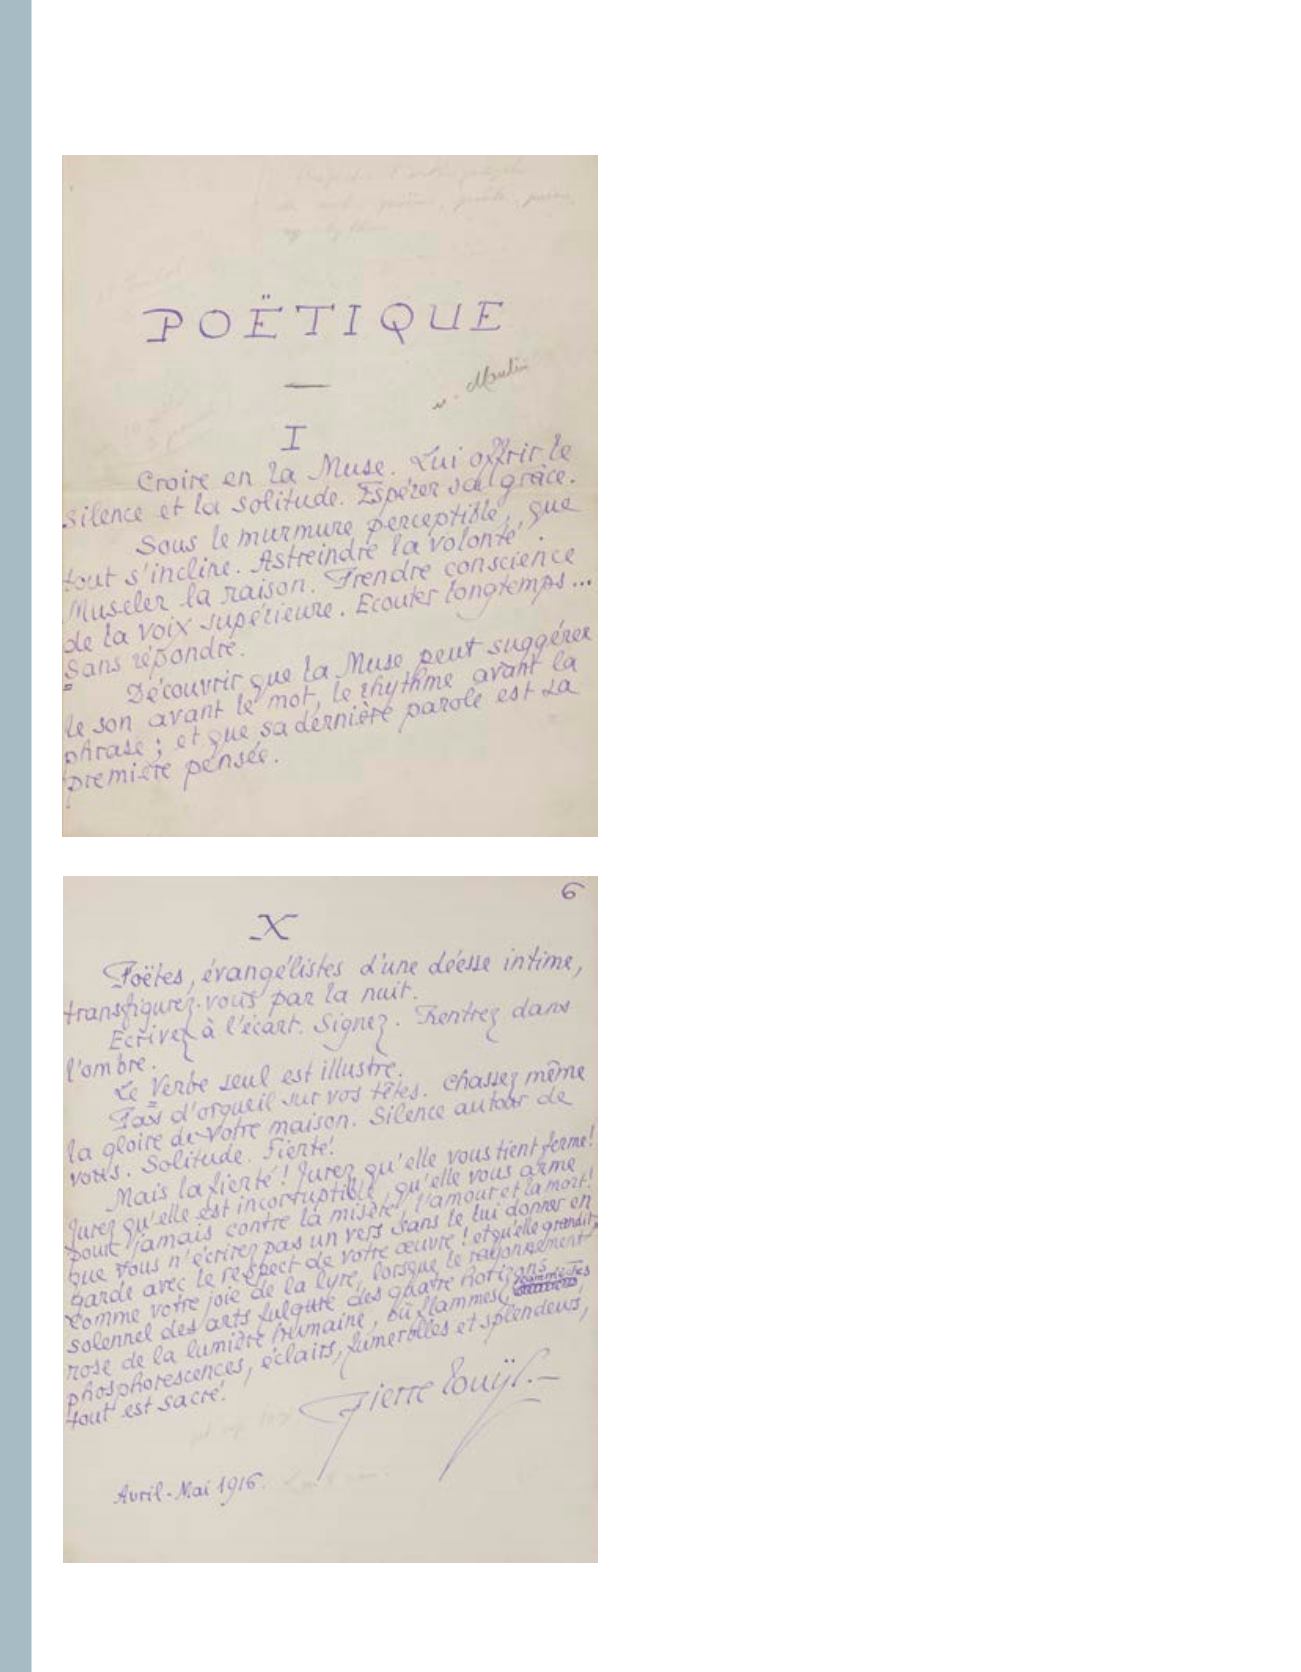 POËTIQUE
I
Croire en la Muse. Lui offrir le
silence et la solitude. Espérer sa grâce.
Sous le murmure perceptible, que
tout s'incline. Astreindre la volonté.
Museler la raison. Prendre conscience
de la voix supérieure. Ecouter longtemps...
Sans répondre.
Découvrir que la Muse peut suggérer
le son avant le mot, le rhythme avant la
phrase ; et que sa dernière parole est La
première pensée.
6
X
Poëtes, évangélistes d'une déesse intime,
transfigurez-vous par la nuit.
Ecrivez à l'écart. Signez. Rentrez dans
l'ombre.
Le Verbe seul est illustre.
Pas d'orgueil sur vos têtes. Chassez même
la gloire de votre maison. Silence autour de
vous. Solitude. Fierté!
Mais la fierté! Jurez qu'elle vous tient ferme!
Jurez qu'elle est incorruptible, qu'elle vous arme
pour jamais contre la misère, l'amour et la mort!
que vous n'écrirez pas un vers sans le lui donner en
garde avec le respect de votre œuvre! et qu'elle grandit,
comme votre joie de la lyre, lorsque le rayonnement
solennel des arts fulgure des quatre horizons
rose de la lumière humaine, où flammes,
phosphorescences, éclairs, fumerolles et splendeurs,
tout est sacré.
Pierre Louÿs.
Avril-Mai 1916.